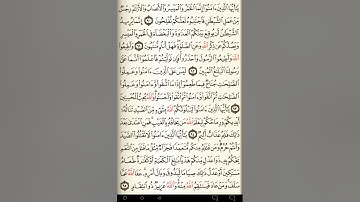 يَٰٓأَيُّهَا ٱلَّذِينَ ءَامَنُوٓاْ إِنَّمَا ٱلْخَمْرُ وَٱلْمَيْسِرُ وَٱلْأَنصَابُ وَٱلْأَزْلَٰمُ رِجْسٌ
مِّنْ عَمَلِ ٱلشَّيْطَٰنِ فَٱجْتَنِبُوهُ لَعَلَّكُمْ تُفْلِحُونَ ٩٠ إِنَّمَا يُرِيدُ
ٱلشَّيْطَٰنُ أَن يُوقِعَ بَيْنَكُمُ ٱلْعَدَٰوَةَ وَٱلْبَغْضَآءَ فِى ٱلْخَمْرِ وَٱلْمَيْسِرِ
وَيَصُدَّكُمْ عَن ذِكْرِ ٱللَّهِ وَعَنِ ٱلصَّلَوٰةِ فَهَلْ أَنتُم مُّنتَهُونَ ٩١ وَأَطِيعُواْ
ٱللَّهَ وَأَطِيعُواْ ٱلرَّسُولَ وَٱحْذَرُواْ فَإِن تَوَلَّيْتُمْ فَٱعْلَمُوٓاْ أَنَّمَا عَلَىٰ
رَسُولِنَا ٱلْبَلَٰغُ ٱلْمُبِينُ ٩٢ لَيْسَ عَلَى ٱلَّذِينَ ءَامَنُواْ وَعَمِلُواْ
ٱلصَّٰلِحَٰتِ جُنَاحٌ فِيمَا طَعِمُوٓاْ إِذَا مَا ٱتَّقَواْ وَّءَامَنُواْ وَعَمِلُواْ
ٱلصَّٰلِحَٰتِ ثُمَّ ٱتَّقَواْ وَّءَامَنُواْ ثُمَّ ٱتَّقَواْ وَّأَحْسَنُواْ وَٱللَّهُ يُحِبُّ ٱلْمُحْسِنِينَ
٩٣ يَٰٓأَيُّهَا ٱلَّذِينَ ءَامَنُواْ لَيَبْلُوَنَّكُمُ ٱللَّهُ بِشَىْءٍ مِّنَ ٱلصَّيْدِ تَنَالُهُۥٓ
أَيْدِيكُمْ وَرِمَاحُكُمْ لِيَعْلَمَ ٱللَّهُ مَن يَخَافُهُۥ بِٱلْغَيْبِ فَمَنِ ٱعْتَدَىٰ بَعْدَ
ذَٰلِكَ فَلَهُۥ عَذَابٌ أَلِيمٌ ٩٤ يَٰٓأَيُّهَا ٱلَّذِينَ ءَامَنُواْ لَا تَقْتُلُواْ ٱلصَّيْدَ
وَأَنتُمْ حُرُمٌ وَمَن قَتَلَهُۥ مِنكُم مُّتَعَمِّدًا فَجَزَآءٌ مِّثْلُ مَا قَتَلَ مِنَ ٱلنَّعَمِ
يَحْكُمُ بِهِۦ ذَوَا عَدْلٍ مِّنكُمْ هَدْيًۢا بَٰلِغَ ٱلْكَعْبَةِ أَوْ كَفَّٰرَةٌ طَعَامُ
مَسَٰكِينَ أَوْ عَدْلُ ذَٰلِكَ صِيَامًا لِّيَذُوقَ وَبَالَ أَمْرِهِۦ عَفَا ٱللَّهُ عَمَّا
سَلَفَ وَمَنْ عَادَ فَيَنتَقِمُ ٱللَّهُ مِنْهُ وَٱللَّهُ عَزِيزٌ ذُو ٱنتِقَامٍ ٩٥